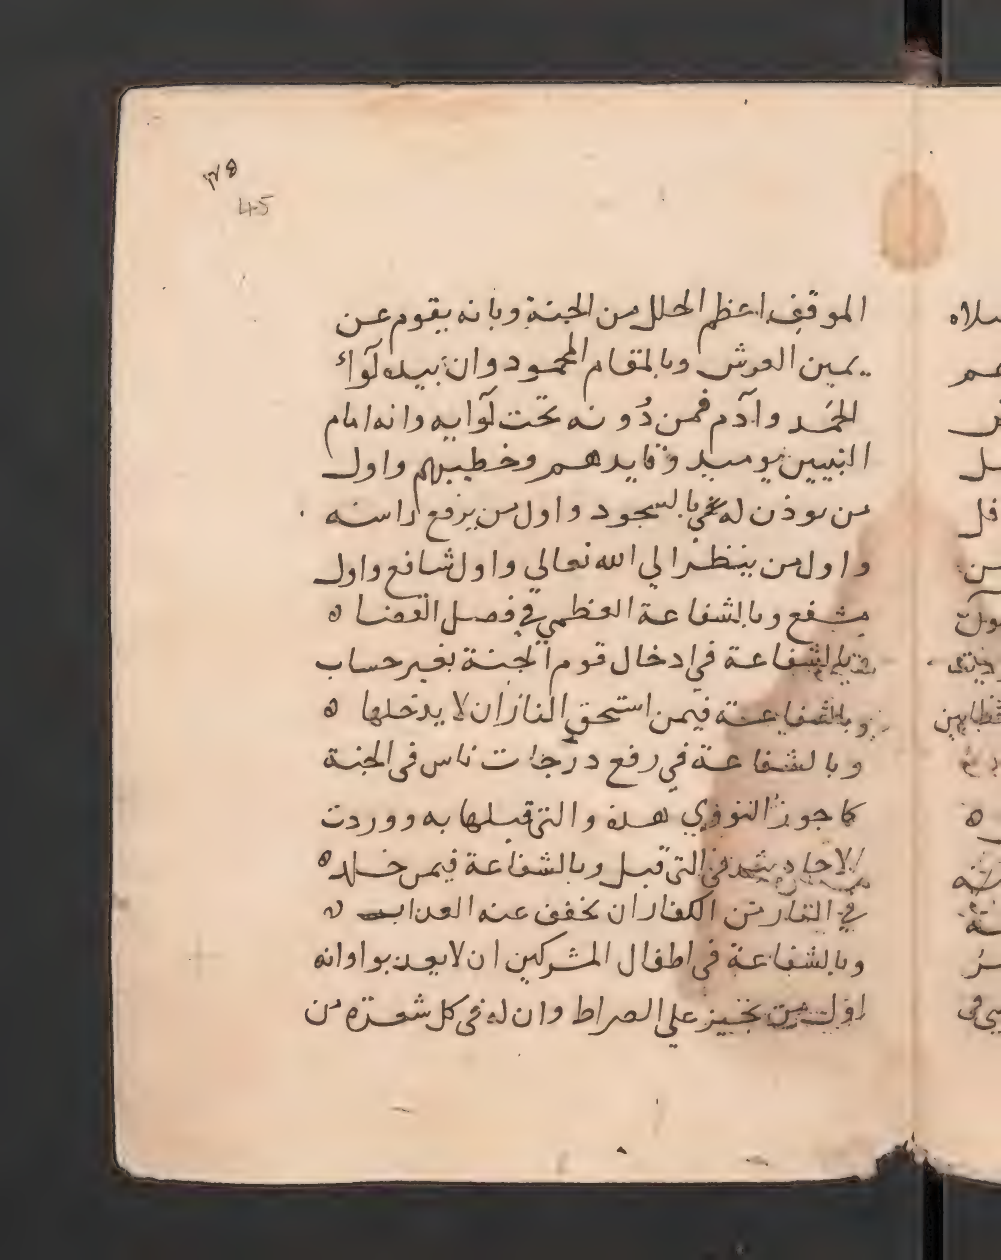 ٤٥
45
الموقف اعظم الحلل من الجنة وبانه يقوم عن
يمين العرش وبالمقام المحمود وان بيده لوآء
الحمد وآدم فمن دونه تحت لوآيه وانه امام
النبيين يوميد وقايدهم وخطيبهم واول
من يوذن له في السجود واول من يرفع راسه
واول من ينظر الي الله تعالي واول شافع واول
مشفع وبالشفاعة العظمي في فصل القضا ه
وبالشفاعة في ادخال قوم الجنة بغير حساب
وبالشفاعة فيمن استحق النار ان لا يدخلها ه
وبالشفاعة في رفع درجات ناس في الجنة
كما جوز النووي هذه والتي قبلها به ووردت
الاحاديث في التي قبل وبالشفاعة فيمن خلد ه
في النار من الكفار ان يخفف عنه العداب ه
وبالشفاعة في اطفال المشركين ان لا يعدبوا وانه
اول من يجيز علي الصراط وان له في كل شعرة من
صلاه